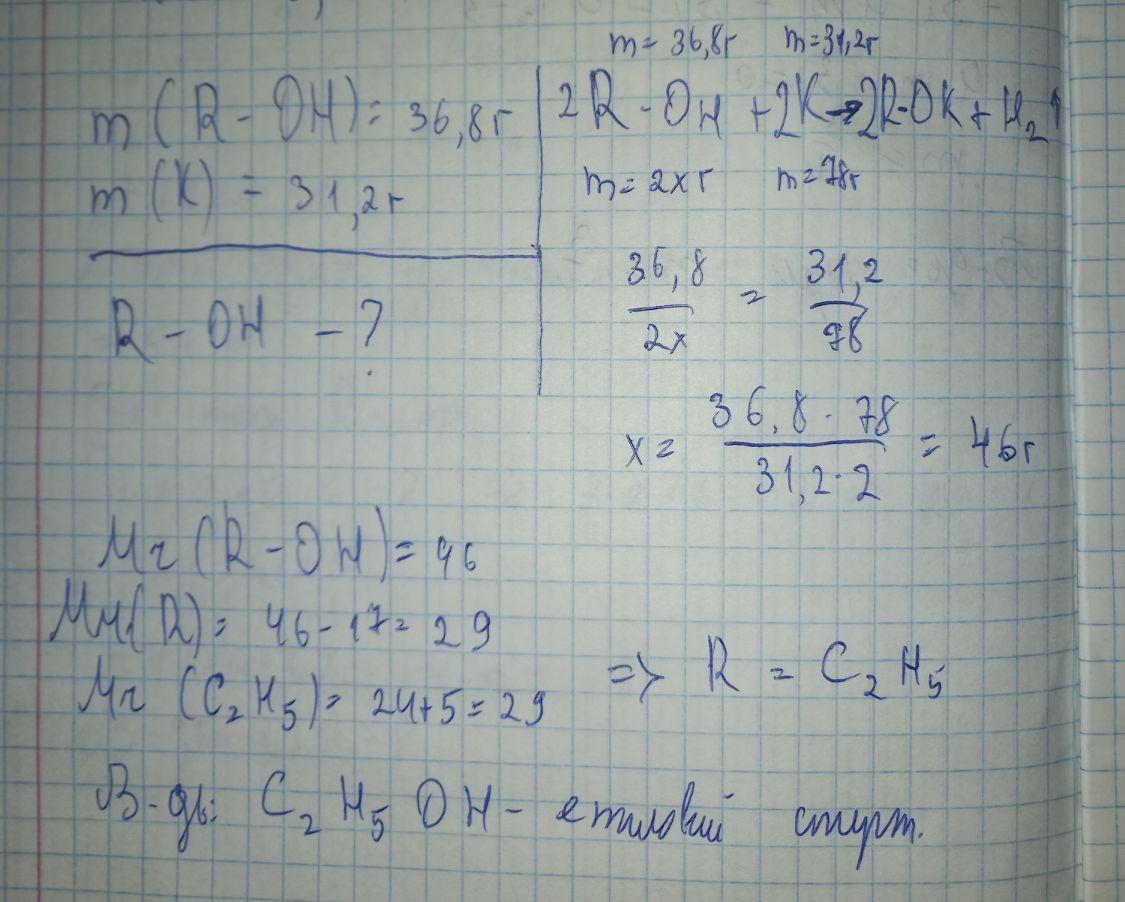 m = 36,8г m = 31,2г
m (R - OH) = 36,8г
2R - OH + 2K → 2R-OK + H₂↑
m (K) = 31,2г
m = 2x г m = 78г
R - OH - ?
36,8 / 2x = 31,2 / 78
x = 36,8 · 78 / 31,2 · 2 = 46г
Mr (R - OH) = 46
Mr (R) = 46 - 17 = 29
Mr (C₂H₅) = 24+5 = 29 => R = C₂H₅
В-дь: C₂H₅OH - етиловий спирт.